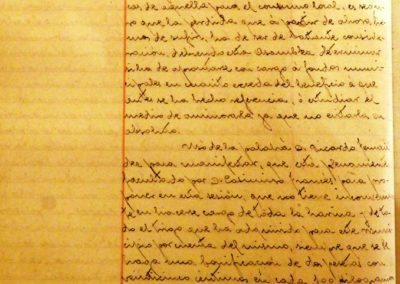 cas de aquella para el consumo local, es segu-
ro que la perdida que á partir de ahora, he-
mos de sufrir, ha de ser de bastante conside-
ración, debiendo esta Asamblea determinar
si ha de aportarse con cargo á fondos muni-
cipales en cuanto exceda del beneficio á que
antes se ha hecho referencia, ó estudiar el
medio de aminorarla ya que no evitarla en
absoluto.
Usó de la palabra D. Ricardo
para manifestar, que está
facultado por D. Casimiro Francés para pro-
poner en esta sesión, que no tiene inconvenien-
te en hacerse cargo de toda la harina y de to-
do el trigo que ha adquirido para este Muni-
cipio por cuenta del mismo, siempre que se le
haga una bonificación de dos pesetas con
céntimos en cada 100 kilogramos